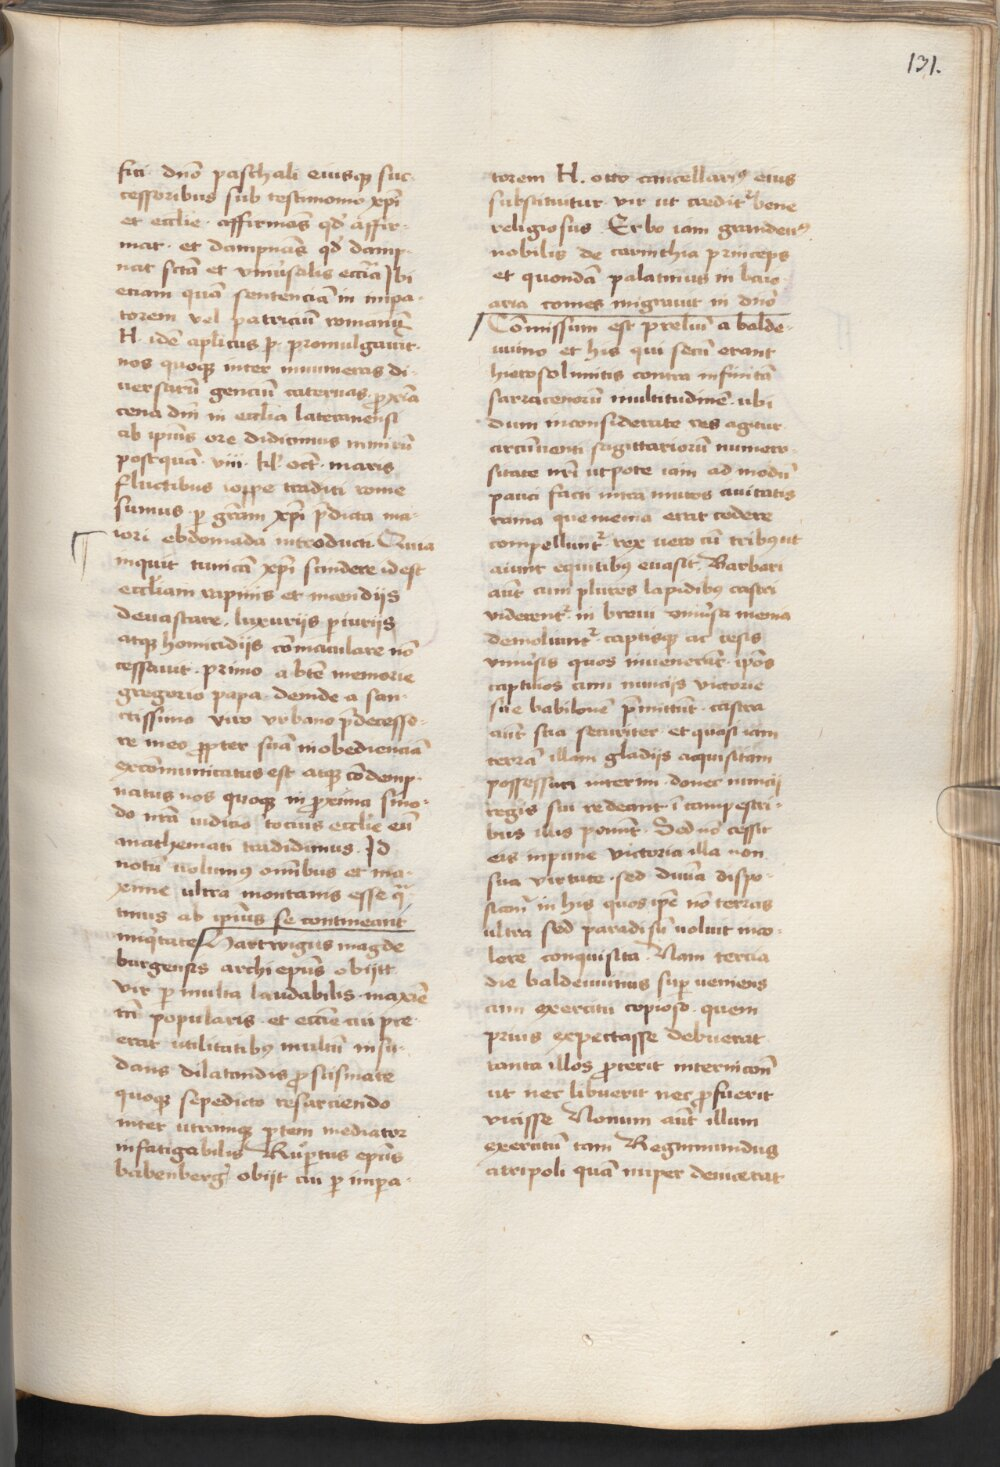 131.
fici · dno᷑ paschali eiusqꝫ suc-
cessoribus sub testimonio xp̄i
et ecclīe · affirmās qd̄ affir-
mat · et dampnās qd̄ damp-
nat sctā et vniūsalis ecc̄ia Ibi
etiam quā sentenciā in impa-
torem vel patriciū romanū
H · idē ap̄licus p̄ · promulgauit ·
nos quoqꝫ inter innumeras di-
uersarū genciū cateruas · ꝓxīa
cena dn̄i in ecclīa lateranensi
ab ip̄ius ore didicimus nimirū
postquā · viii · kl̄ · oct̄ · maris
fluctibus ioppe traditi rome
sumus · p gr̄am xp̄i p̄dicta ma-
iori ebdomada introducti · Quia
inquit tunicā xp̄i scindere id est
eccl̄iam rapinis et incendijs
deuastare, luxurijs p̱iurijs
atqꝫ homicidijs cōmaculare nō
cessauit · primo a btē memorie
gregorio papa · deinde a san-
ctissimo viro vrbano p̄decesso-
re meo ꝓpter suā inobedienciā
excōmunicatus est atqꝫ cōdemp-
natus nos quoqꝫ in ꝓxima sino-
do nr̄a iudicio tocius ecclīe eū
anathemati tradidimus · Id
notū volumꝰ om̄ibus et ma-
xime ultra montanis esse q̄
tinus ab ip̄ius se contineant
iniq̄tate Hartwigus magde
burgensis archiepūs obijt
vir p multa laudabilis · maxīe
tn̄ popularis · et ecc̄ie cui pre
erat utilitatibꝰ multū insu-
dans dilatandis ꝓ scismate
quoqꝫ sepedicto resarciendo
inter utramqꝫ p̱tem mediator
infatigabilis Rup̱tus epūs
babenberg᷑ obijt cui p imp̱a-
torem H. otto cancellariꝰ eius
substituitur · vir ut creditᷣ bene
religiosus Erbo iam grandeuꝰ
nobilis de carinthia princeps
et quondā palatinus in baio-
aria comes migrauit in dn̄o
Cōmissum est preliū a balde-
wino et his qui secū erant
hierosolimitis contra infinitā
sarracenorū multitudinē · ubi
dum inconsiderate res agitur
circūuenti sagittariorū numero-
sitate nr̄i utpote iam ad modū
pauci facti intra muros ciuitatis
rama que menia erat cedere
compelluntᷣ rex vero cū tribꝰ ut
aiunt equitibꝰ euasit · Barbari
aūt cum plures lapidibꝰ castri
viderentᷣ · in breui vniūsa menia
demoliuntᷣ captisqꝫ ac cesis
vniūsis quos inuenerūt · ip̄os
captiuos cum nuncijs victorie
sue babilonē p̄mittūt · castra
aūt sua securiter · et quasi iam
terrā illam gladijs acquisitam
possessuri interim · donec nuncij
regis sui redeant ī campestri-
bus illis ponūt · Sed nō cessit
eis inpune victoria illa non
sua virtute · sed diuīa dispo-
sicōn̄ in his quos ip̄e nō terras
ultra sed paradisū voluit inco-
lere conquisita · Nam tercia
die baldewinus sup̱ueniens
cum exercitu copioso · quem
prius expectasse debuerat
tanta illos ꝓterit internicōn̄
ut nec libuerit nec ꝓfuerit
vicisse Nonum aūt illum
exercitū tam Regimundus
a tripoli quā nuper deuicerat